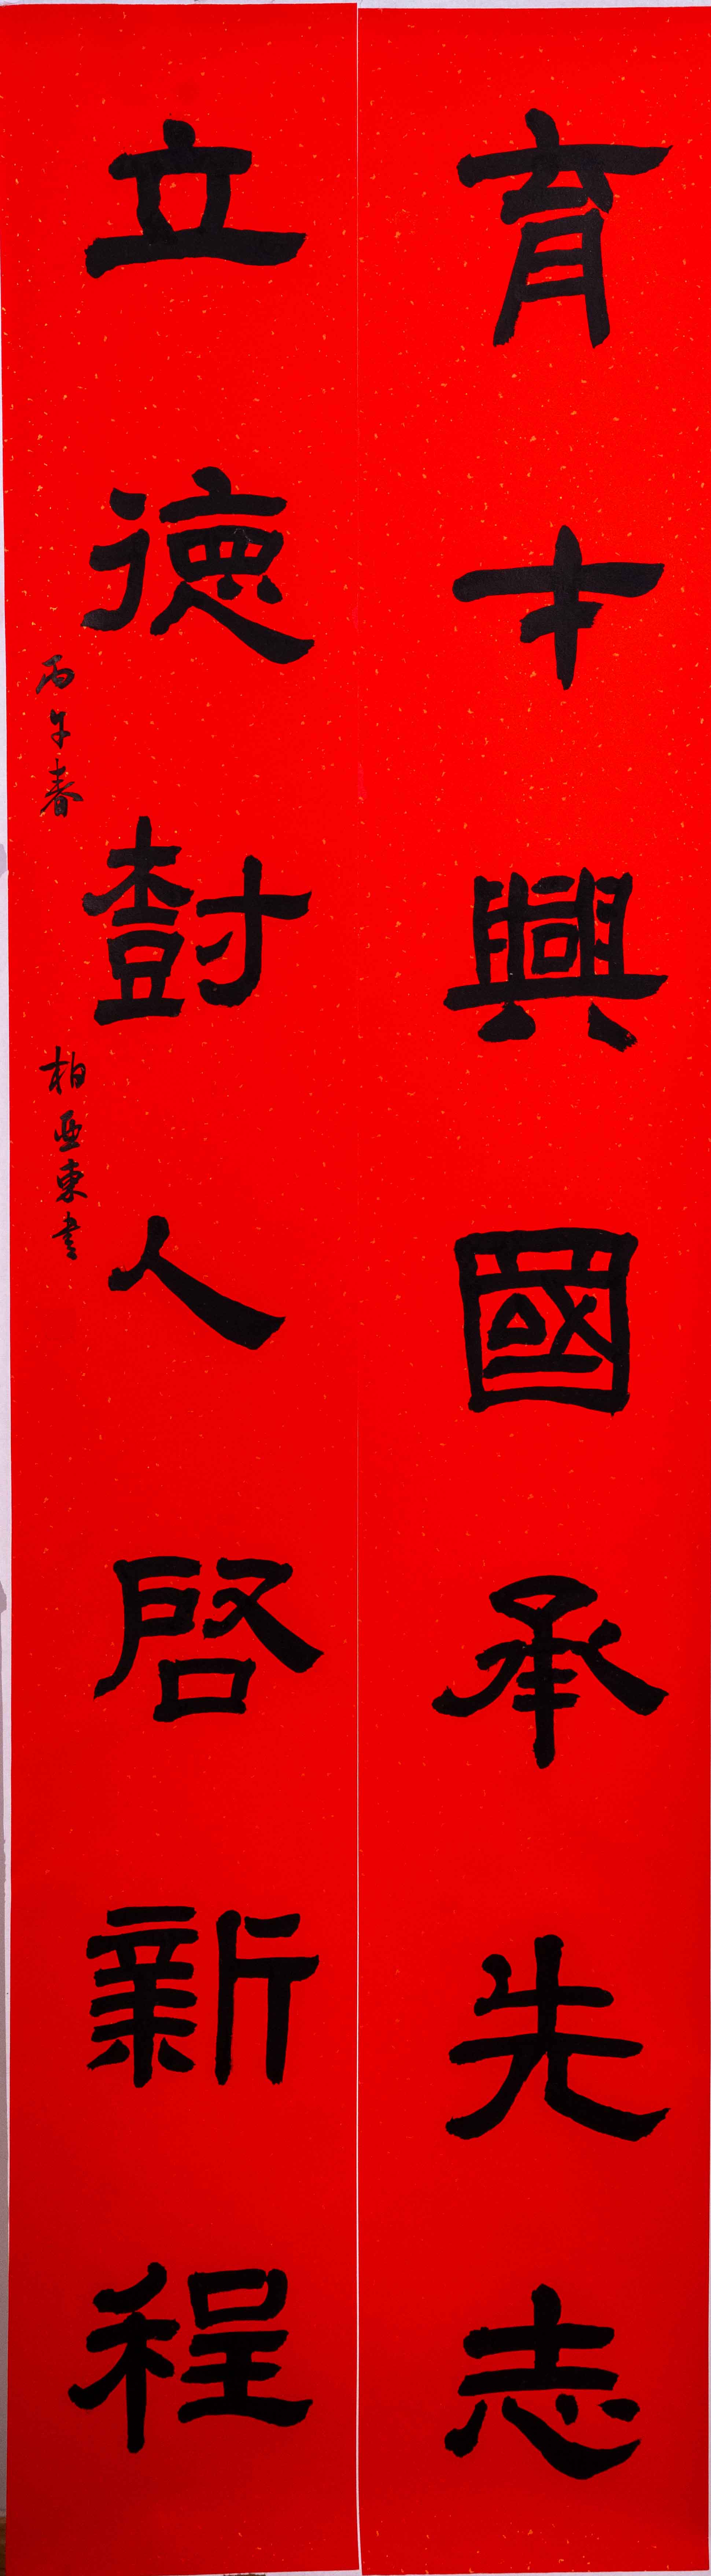 育才興國承先志
立德樹人啓新程
丙午春 柏亞東書